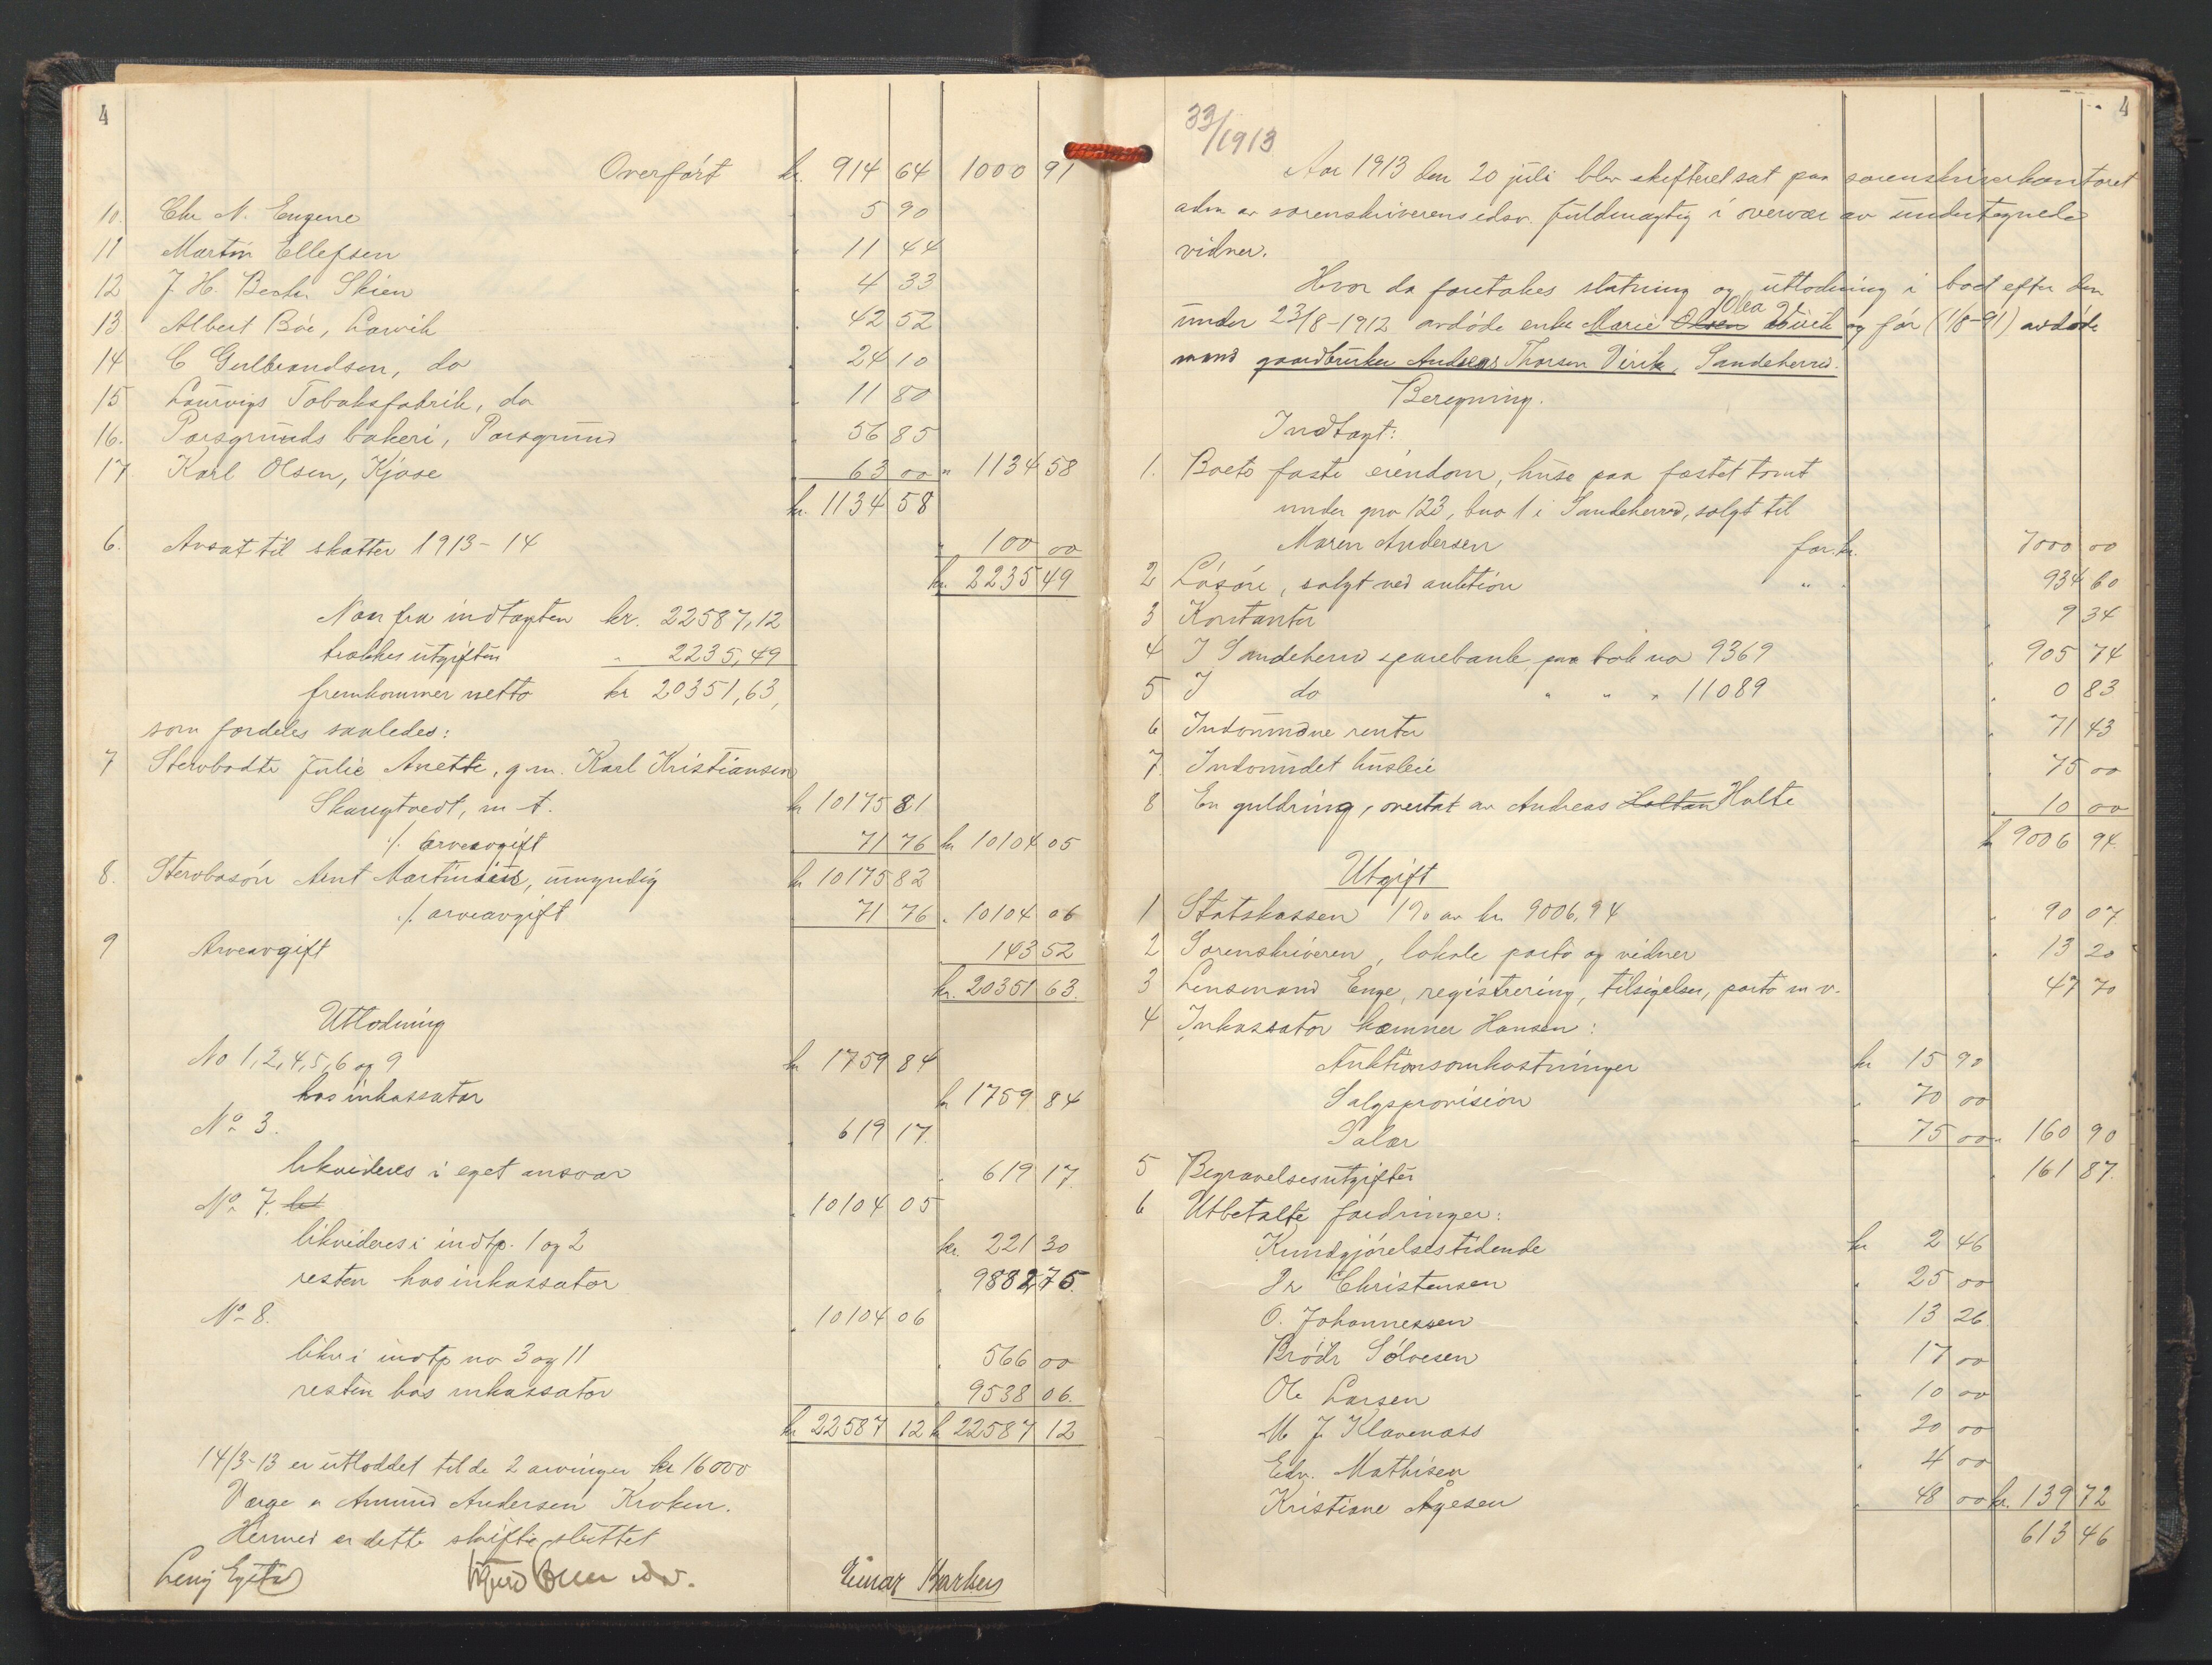 4
Overført kr. 914 64 1000 91
10. Chr N. Eugene " 5 90
11 Martin Ellefsen " 11 44
12 J. H. Skien " 4 33
13 Albert Bøe, Larvik " 42 52
14 C Gulbrandsen, do " 24 10
15 Laurvigs Tobaksfabrik, do " 11 80
16. Porsgrunds bakeri, Porsgrund " 56 85
17 Karl Olsen, Kjose " 63 00 " 1134 58
kr. 1134 58
6. Avsat til skatter 1913-14 " 100 00
kr. 2235 49
Naar fra indtægten kr. 22587,12
trækkes utgiften " 2235,49
fremkommer netto kr 20351,63,
som fordeles saaledes:
7 Stervbodts Julie Anette, g.m. Karl Kristiansen
m-t. kr 10175 81
./. arveavgift 71 76 kr 10104 05
8. Stervbosøn Arnt Martinius, umyndig kr 10175 82
./. arveavgift 71 76 " 10104 06
9 Arveavgift 143 52
kr. 20351 63.
Utlodning
No 1, 2, 4, 5, 6 og 9 kr 1759 84
hos inkassator kr 1759 84
No 3. " 619 17.
likvideres i eget ansvar " 619 17.
No 7. " 10104 05
likvideres i indtp. 1 og 2 kr. 221 30
resten hos inkassator " 9882,75.
No 8. " 10104 06
likv i indtp no 3 og 11 " 566 00
resten hos inkassator " 9538 06.
kr 22587 12 kr 22587 12
14/3-13 er utloddet til de 2 arvinger kr 16000
Værge er Amund Andersen Kroken.
Hermed er dette skifte sluttet
Einar Barkus
4
33/1913
Aar 1913 den 20 juli blev skifteret sat paa sorenskriverkontoret
adm av sorenskriverens edsv. fuldmægtig i overvær av undertegnede
vidner.
Hvor da foretokes slutning og utlodning i boet efter den
under 23/8-1912 avdøde enke Marie Olsen Olea Virik og før (1/8-91) avdøde
mand gaardbruker Andreas Thorsen Virik, Sandeherred.
Beregning.
Indtægt:
1. Boets faste eiendom, huse paa fæstet tomt
under gno 123, bno 1 i Sandeherred, solgt til
Maren Andersen for kr. 7000 00
2 Løsøre, solgt ved auktion " " 934 60
3 Kontanter " 9 34
4 I Sandeherred sparebank, paa bok no 9369 " 905 74
5 I do " " " 11089 " 0 83
6 Indvundne renter " 71 43
7. Indvundet husleie " 75 00
8 En guldring, overtat av Andreas Holtan Holte " 10 00
kr 9006 94.
Utgift
1 Statskassen 1% av kr. 9006,94 " 90 07.
2 Sorenskriveren, lokale porto og vidner " 13 20
3 Lensmand Enge, registrering, tilsigelser, porto m v. " 47 70
4 Inkassator kæmner Hansen:
Auktionsomkostninger kr 15 90
Salgsprovision " 70 00
Salær " 75 00 " 160 90
5 Begravelsesutgifter " 161 87.
6 Utbetalte fordringer:
Kundgjørelsestidende kr 2 46
Dr Christensen " 25 00
O. Johannessen " 13 26.
Brødr Sølvesen " 17 00
Ole Larsen " 10 00
M J. Klavenæss " 20 00
Edv. Mathisen " 4 00
Kristiane Agesen " 48 00 kr. 139 72
613 46